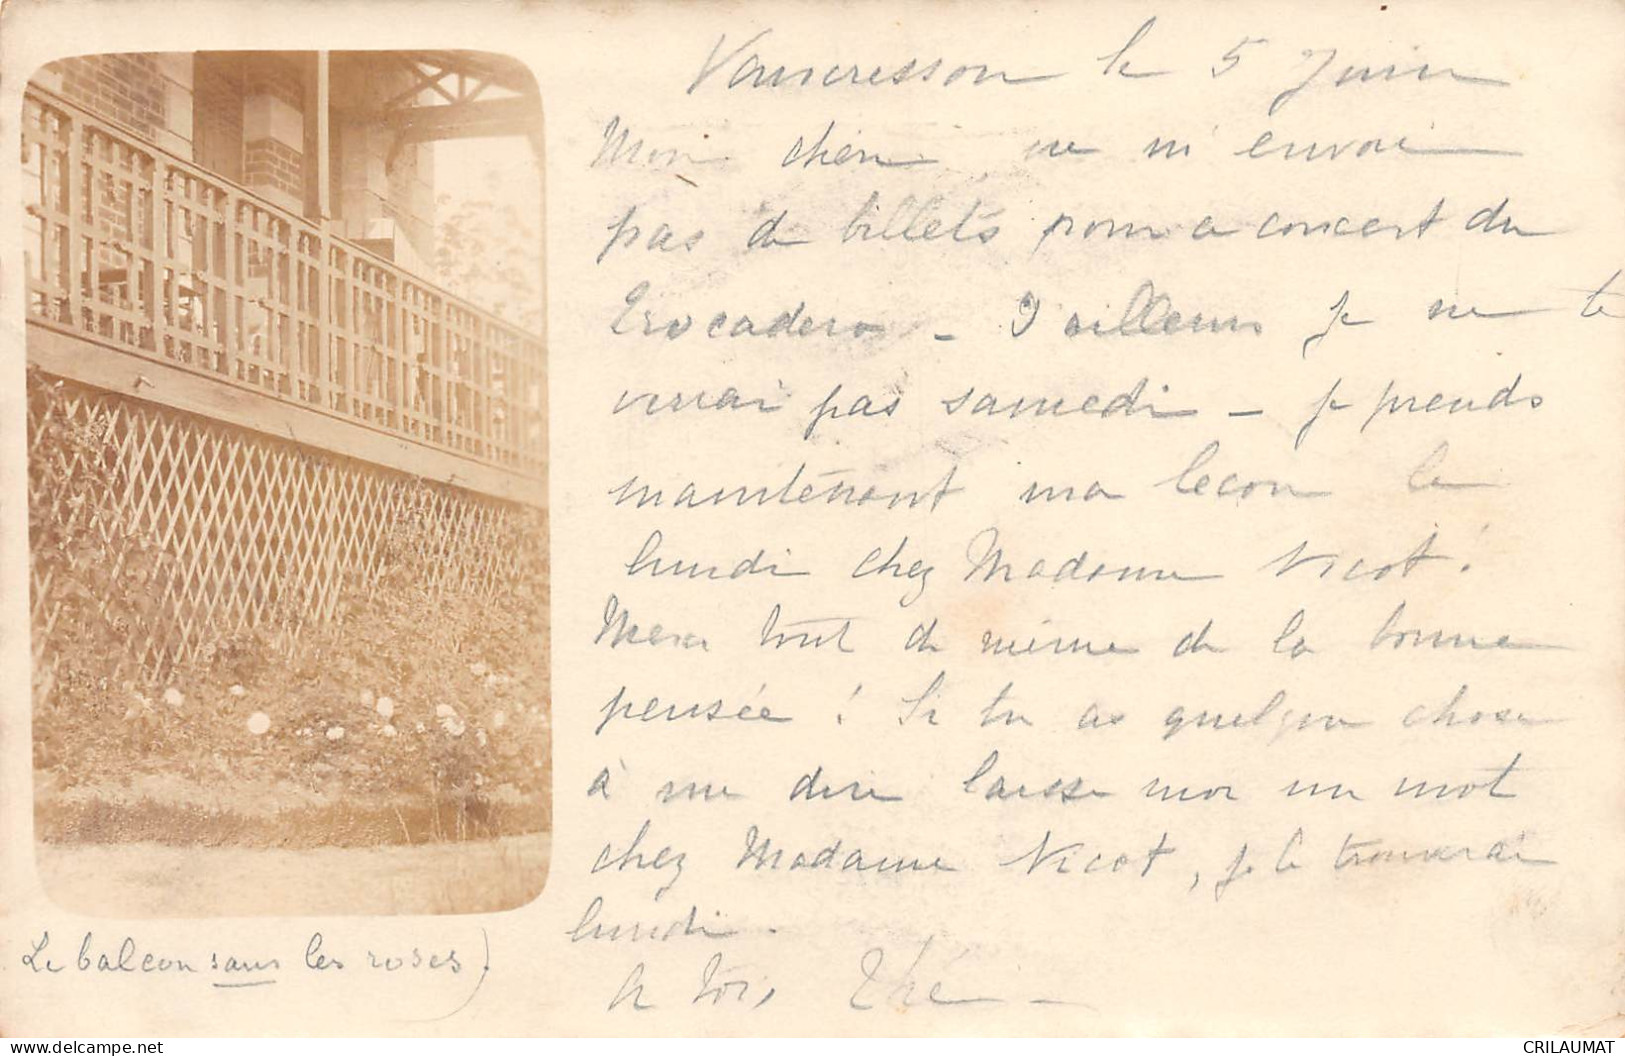 Vaucresson le 5 Juin
Mon chéri ne m'envoie
pas de billets pour ce concert du
Trocadero - D'ailleurs je ne te
verrai pas samedi - je prends
maintenant ma leçon le
lundi chez Madame Nicot !
Merci tout de même de la bonne
pensée ! Si tu as quelque chose
à me dire laisse moi un mot
chez Madame Nicot, je le trouverai
lundi.
A toi,
Le balcon sans les roses)
delcampe.net
CRILAUMAT